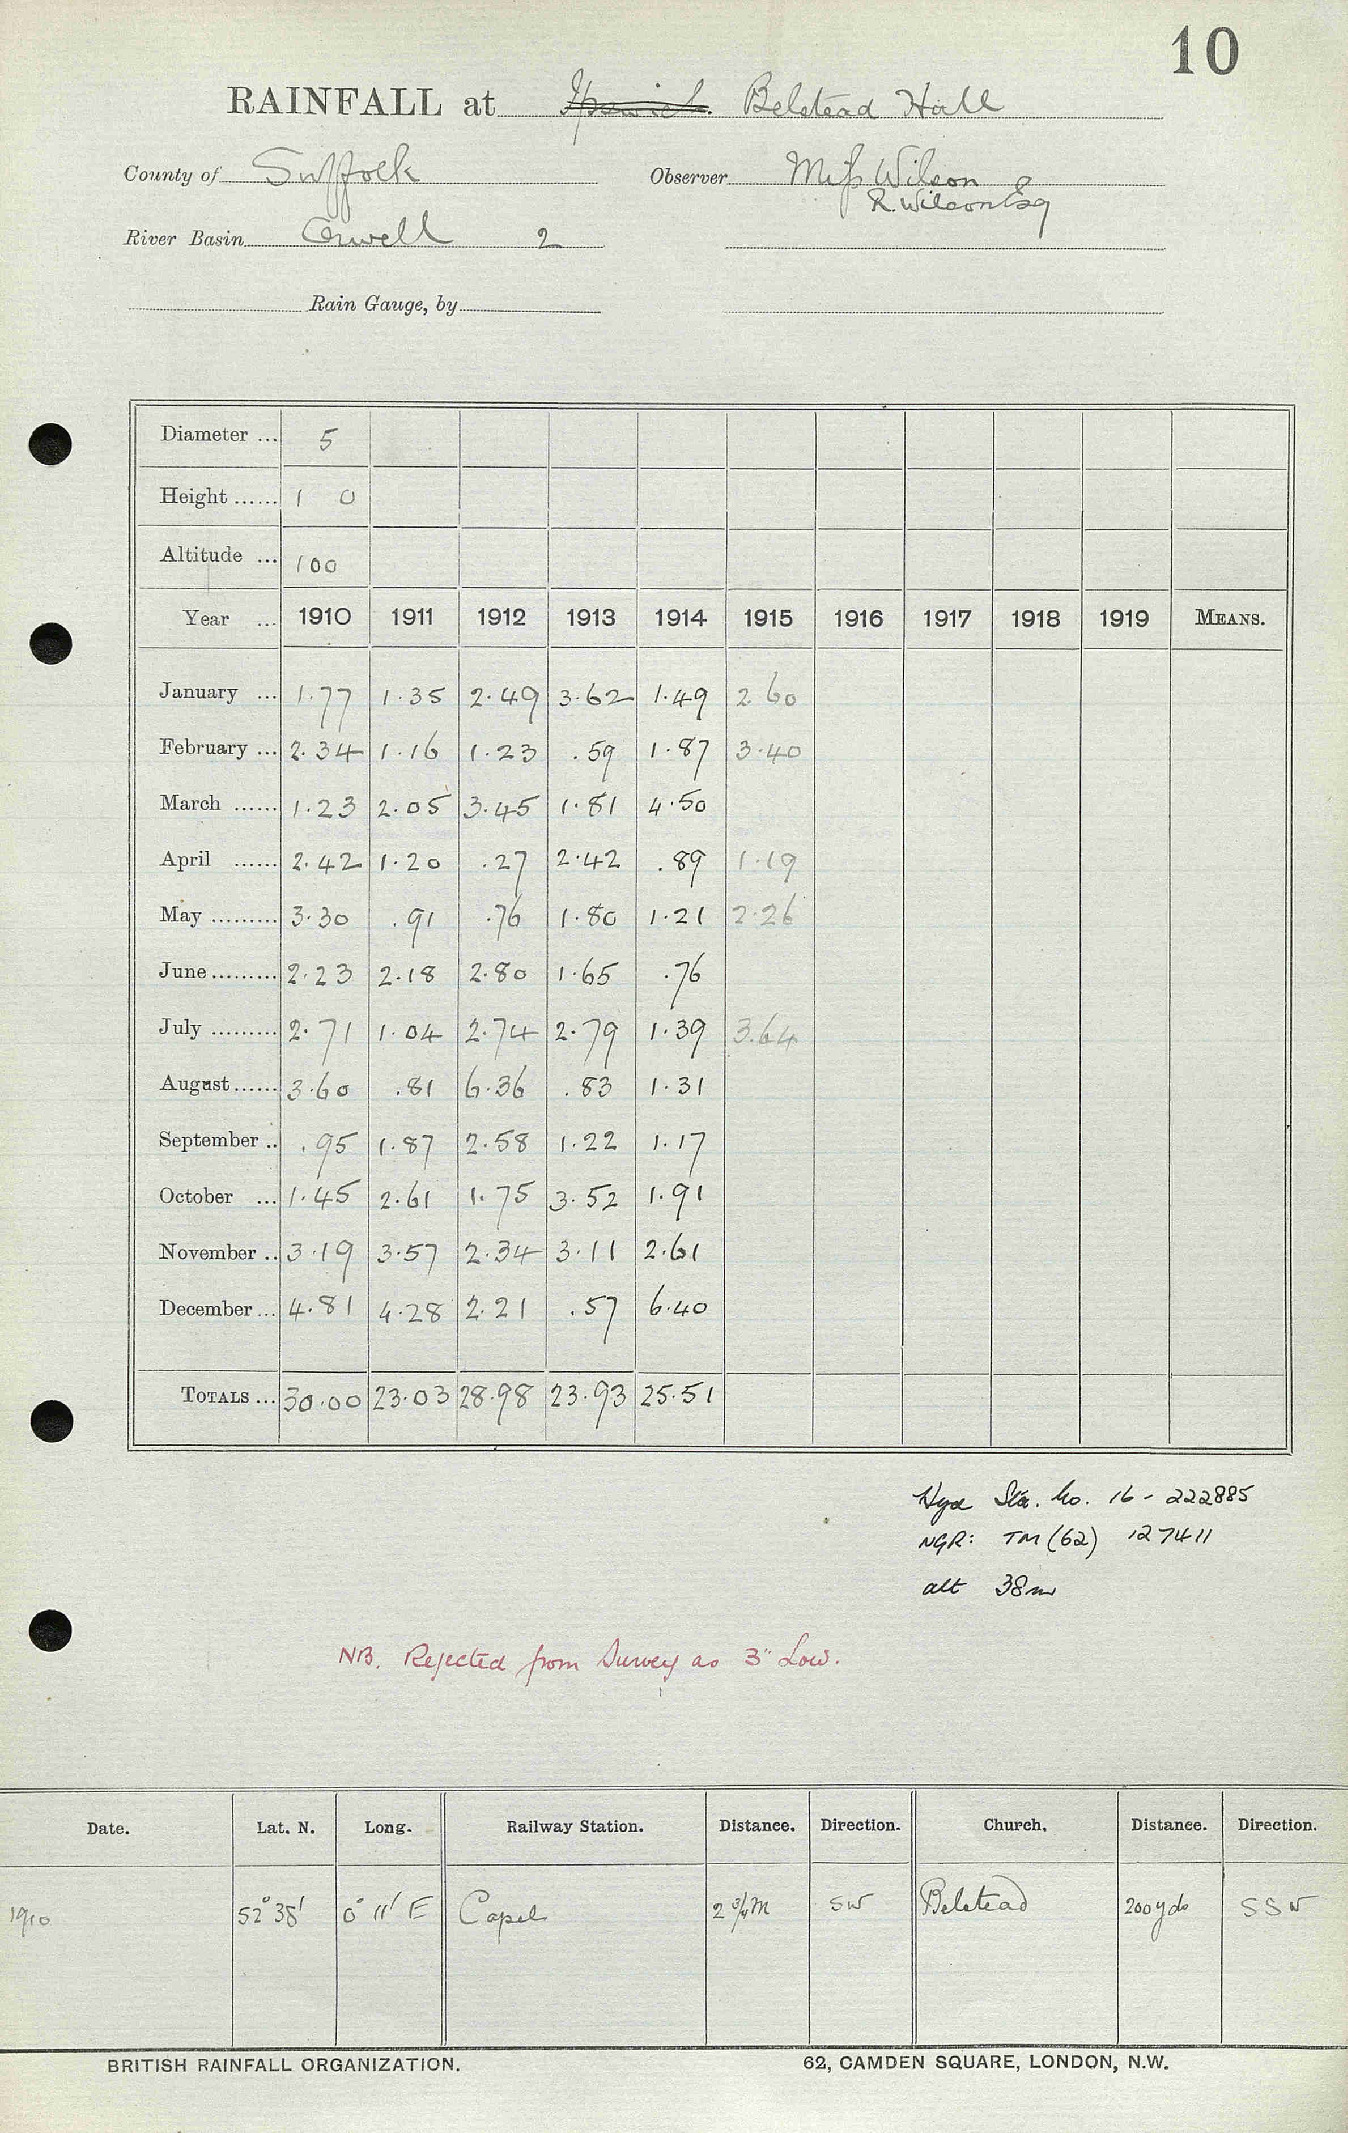 10
RAINFALL at Ipswich. Belstead Hall
County of Suffolk Observer Miss Wilson
R. Wilson Esq
River Basin Orwell 2
Rain Gauge, by
Diameter ... 5
Height ...... 1 0
Altitude ... 100
Year ... 1910 1911 1912 1913 1914 1915 1916 1917 1918 1919 MEANS.
January ... 1.77 1.35 2.49 3.62 1.49 2.60
February ... 2.34 1.16 1.23 .59 1.87 3.40
March ...... 1.23 2.05 3.45 1.81 4.50
April ...... 2.42 1.20 .27 2.42 .89 1.19
May ......... 3.30 .91 .76 1.80 1.21 2.26
June ......... 2.23 2.18 2.80 1.65 .76
July ......... 2.71 1.04 2.74 2.79 1.39 3.64
August ...... 3.60 .81 6.36 .83 1.31
September .. .95 1.87 2.58 1.22 1.17
October ... 1.45 2.61 1.75 3.52 1.91
November .. 3.19 3.57 2.34 3.11 2.61
December ... 4.81 4.28 2.21 .57 6.40
TOTALS ... 30.00 23.03 28.98 23.93 25.51
Hyd Sta. No. 16 - 222885
NGR: TM (62) 127411
alt 38m
NB. Rejected from Survey as 3" Low.
Date. Lat. N. Long. Railway Station. Distance. Direction. Church. Distance. Direction.
1910 52° 38' 0° 11' E Capel 2 3/4 M SW Belstead 200 yds SSW
BRITISH RAINFALL ORGANIZATION. 62, CAMDEN SQUARE, LONDON, N.W.